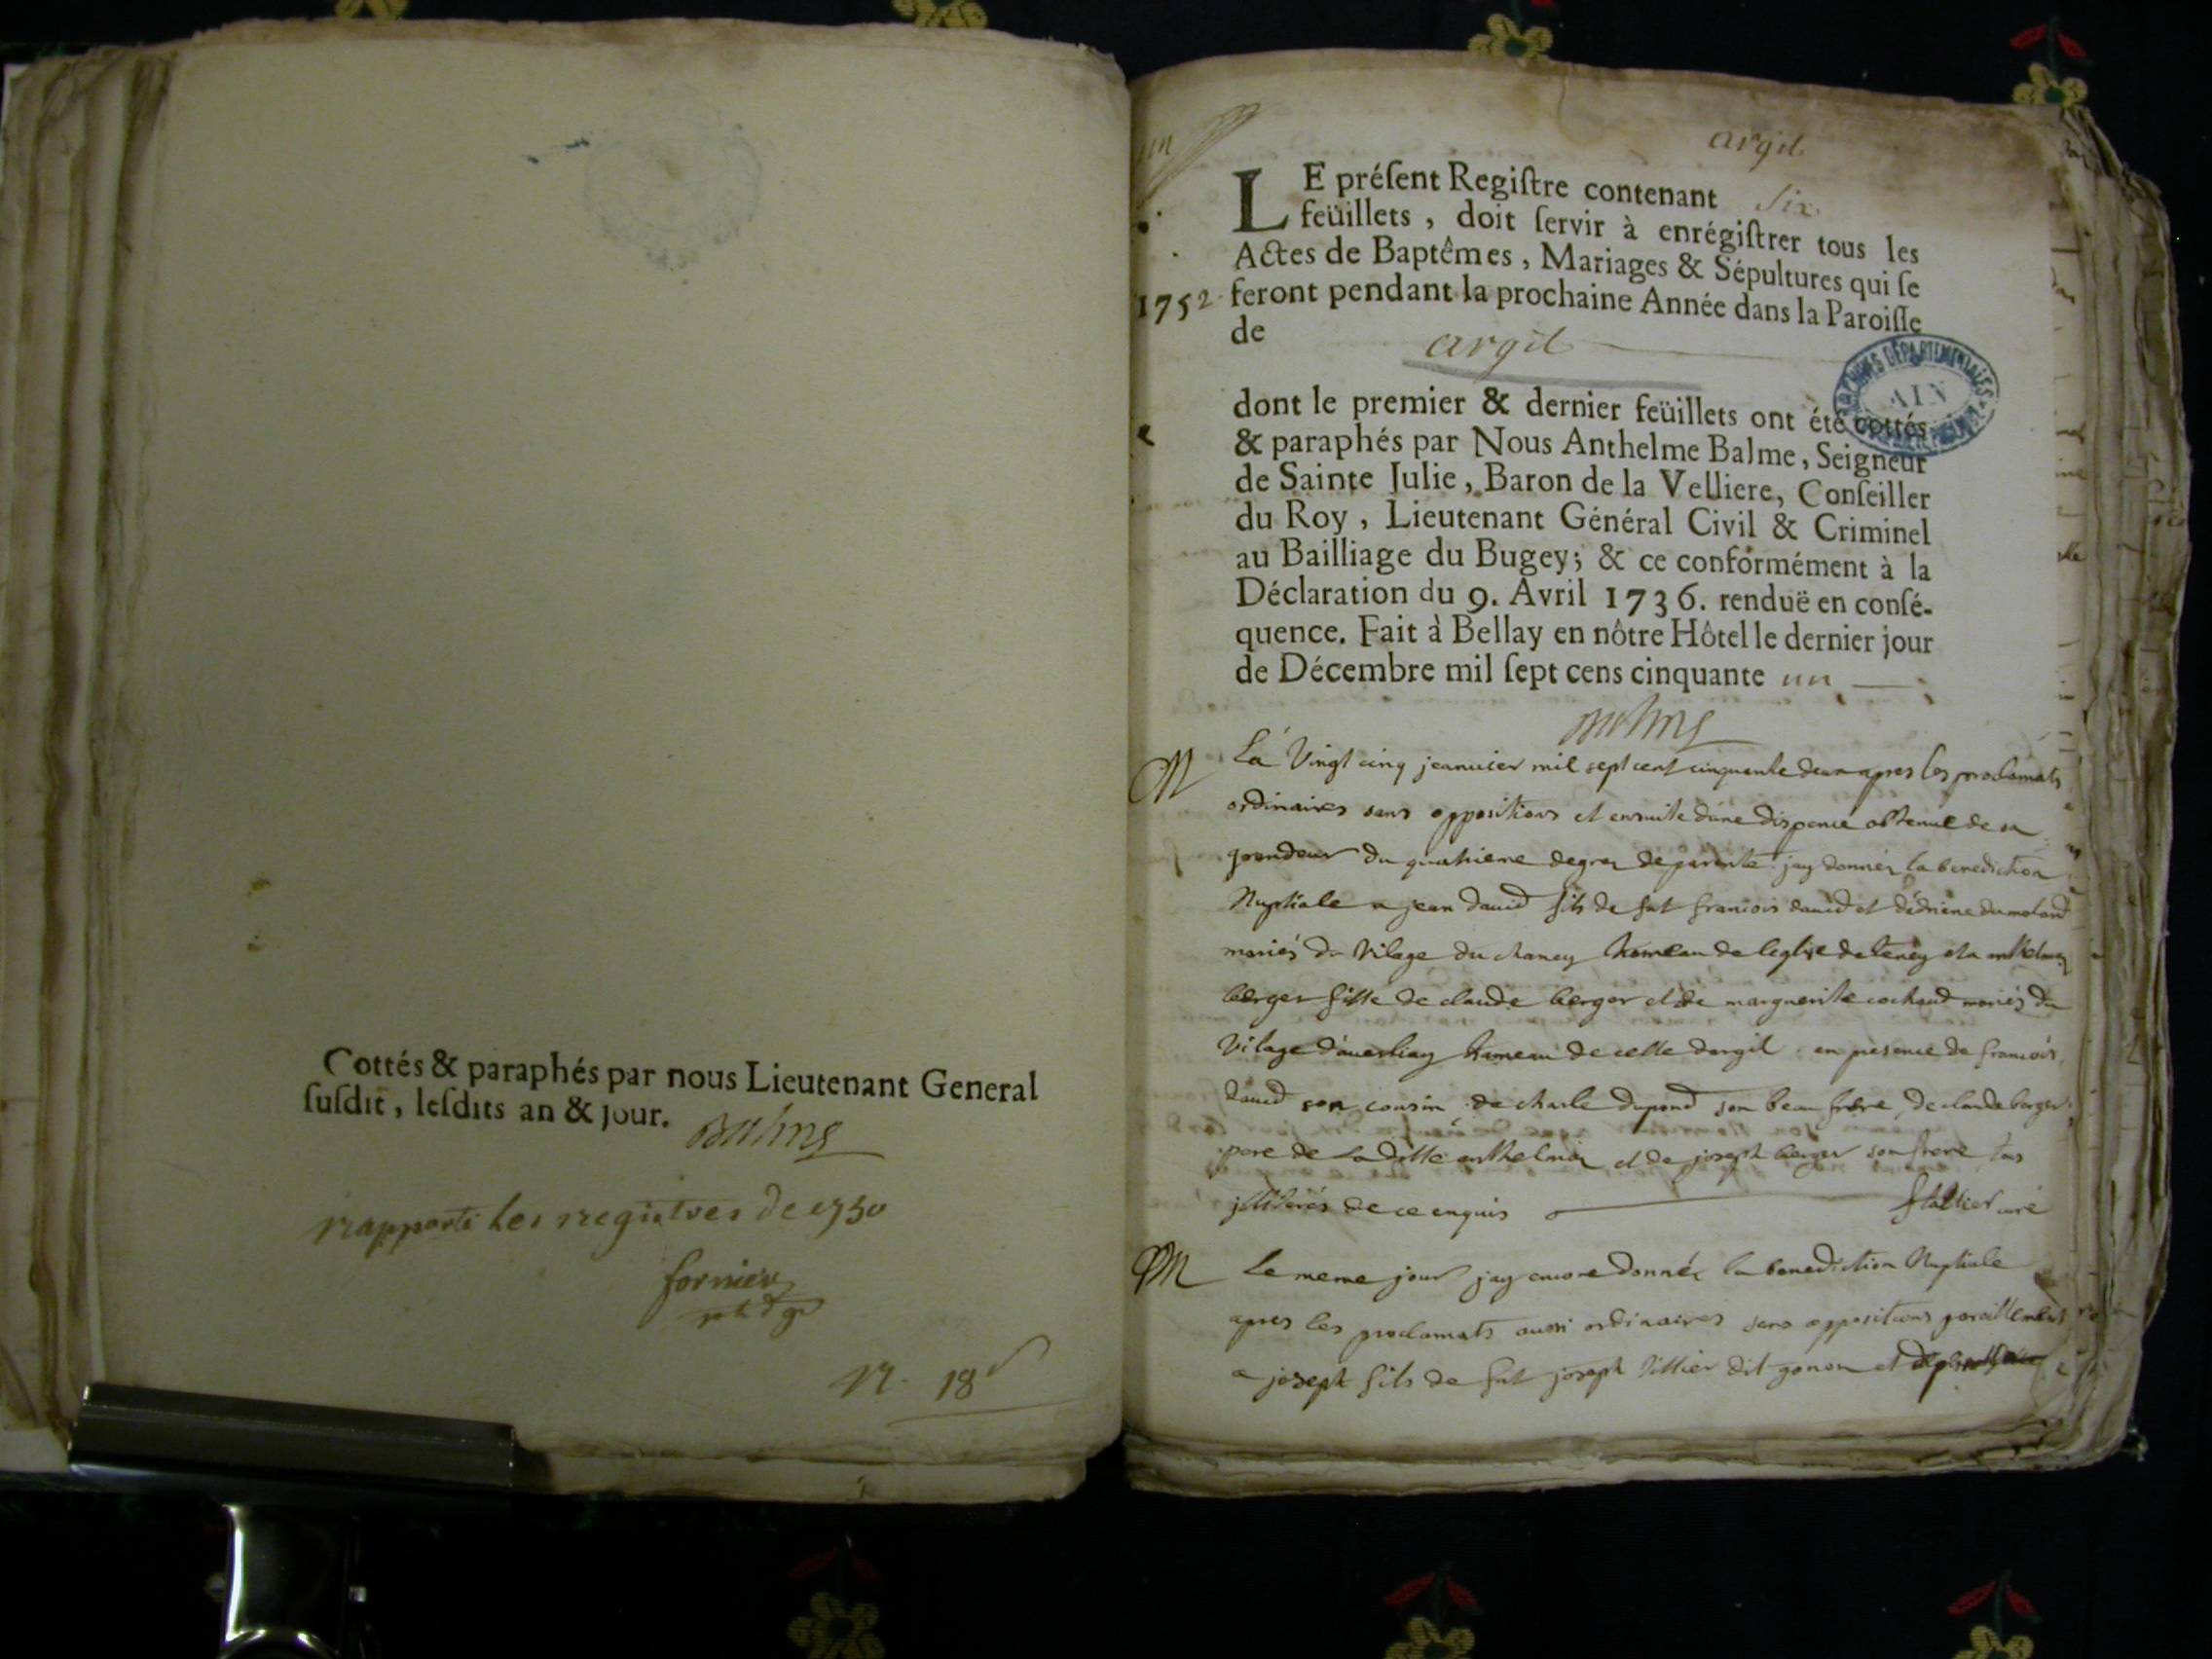 Cottés & paraphés par nous Lieutenant General
ſuſdit, leſdits an & jour.
Balme
rapporté les registres de 1750
fornier
n. 18
un
argil
LE préſent Regiſtre contenant six
feüillets, doit ſervir à enrégiſtrer tous les
Actes de Baptêmes, Mariages & Sépultures qui ſe
1752 feront pendant la prochaine Année dans la Paroiſſe
de argil
ARCHIVES DÉPARTEMENTALES
AIN
dont le premier & dernier feüillets ont été cottés
& paraphés par Nous Anthelme Balme, Seigneur
de Sainte Julie, Baron de la Velliere, Conſeiller
du Roy, Lieutenant Général Civil & Criminel
au Bailliage du Bugey; & ce conformément à la
Déclaration du 9. Avril 1736. renduë en conſé-
quence. Fait à Bellay en nôtre Hôtel le dernier jour
de Décembre mil ſept cens cinquante un
Balme
M La Vingt cinq jeanvier mil sept cent cinquante deux apres les proclamats
ordinaires sans oppositions et ensuite d'une dispence obtenue de sa
grandeur du quatrieme degrez de parenté jay donnéz la benediction
Nuptiale a jean david fils de fut francois david et
mariés du vilage du chaney hameau de leglise de teney et a anthelmaz
berger fille de claude berger et de marguerite cochaud mariés du
vilage d'averliaz hameau de celle dargil en presence de francois
david son cousin de charle dupond son beau frere de claude berger
pere de la ditte anthelmaz et de joseph berger son frere tous
jlliterés de ce enquis curé
M Le meme jour jay encore donnéz la benediction Nuptiale
apres les proclamats aussi ordinaires sans oppositions pareillement
a joseph fils de fut joseph tillier dit gonon et